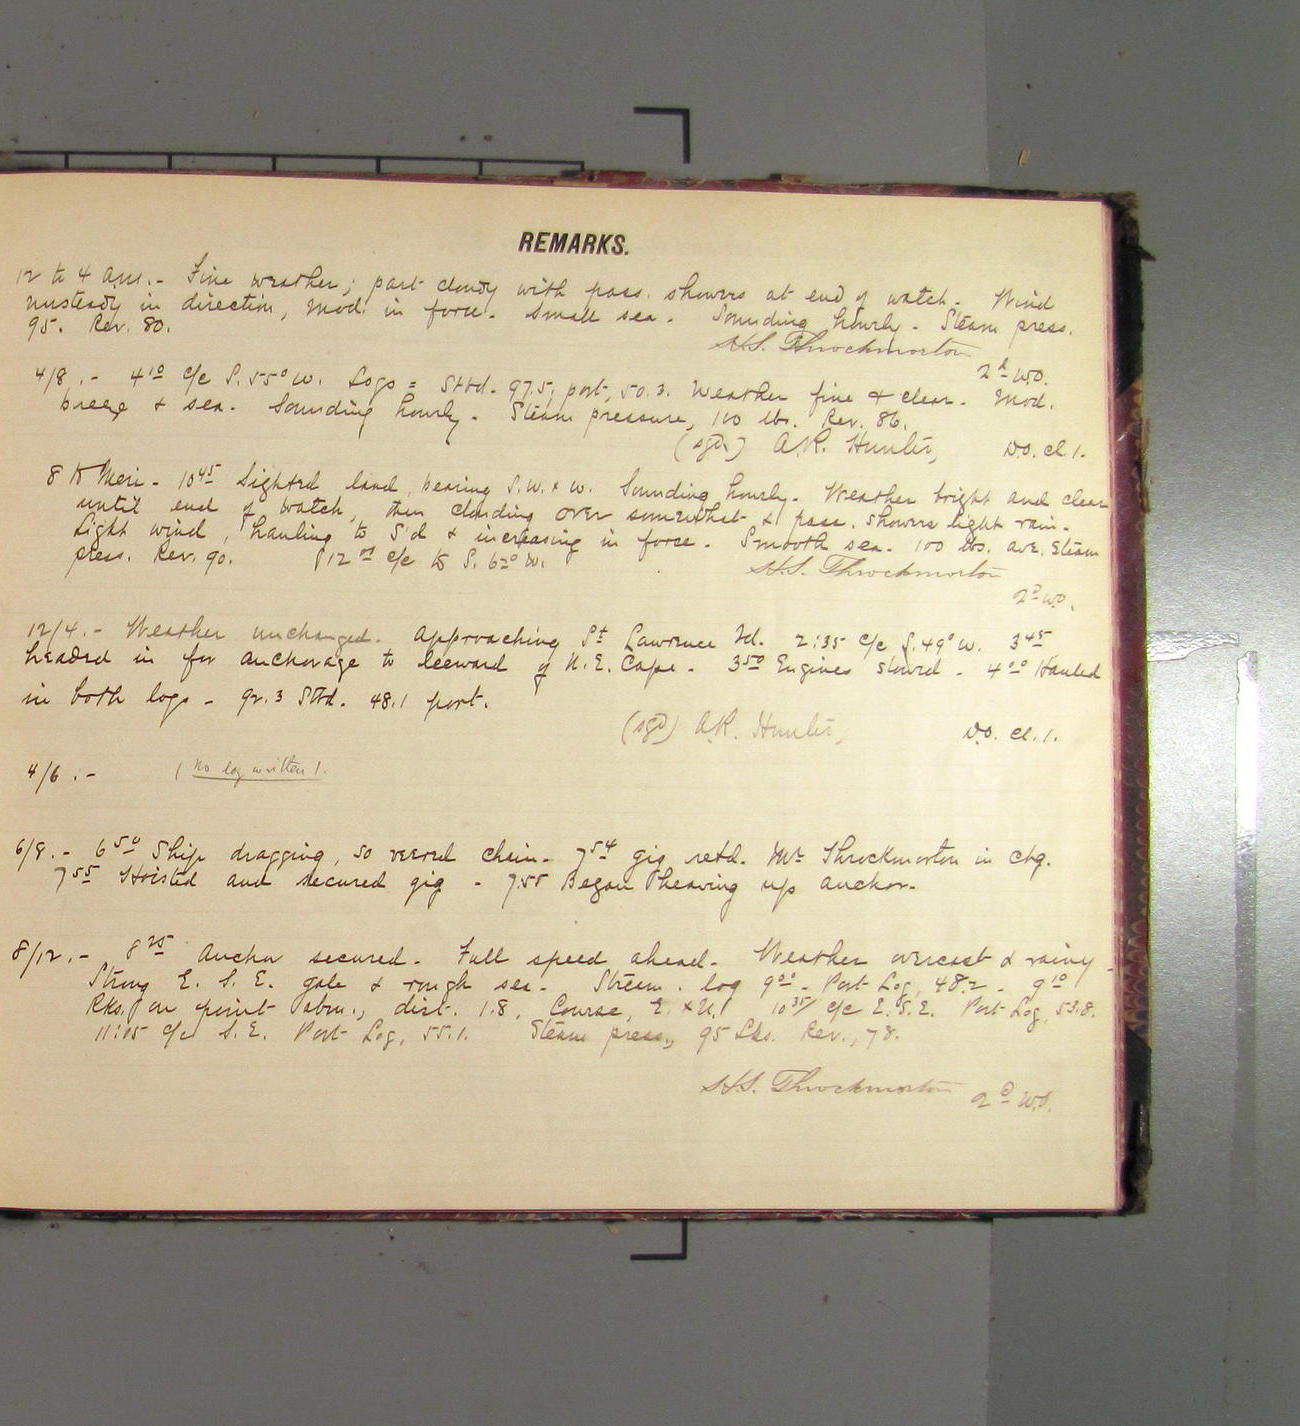 REMARKS.
12 to 4 a.m. - Fine weather; part cloudy with pass. showers at end of watch. Wind
unsteady in direction, mod. in force. Small sea. Sounding hourly. Steam press.
95. Rev. 80.
H.S. Throckmorton
2d W.O.
4/8. - 4 10 c/c S. 55° W. Logs = Stbd. 97.5; port, 50.3. Weather fine & clear. Mod.
breeze & sea. Sounding hourly. Steam pressure, 100 lbs. Rev. 86.
(sgd.) A.R. Hunter, W.O. cl 1.
8 to Meri - 10 45 Sighted land, bearing S.W. x W. Sounding hourly. Weather bright and clear
until end of watch, then clouding over somewhat & pass. showers light rain.
Light wind, hauling to S'd & increasing in force. Smooth sea. 100 lbs. ave. steam
press. Rev. 90. 12 c/c to S. 62° W.
H.S. Throckmorton
2d W.O.
12/4. - Weather unchanged. Approaching St Lawrence Id. 2:35 c/c S. 49° W. 3 45
headed in for anchorage to leeward of N.E. Cape. 3 50 Engines slowed. 4 00 Hauled
in both logs - 92.3 Stbd. 48.1 port.
(sgd) A.R. Hunter, W.O. cl. 1.
4/6. - (No log written).
6/8. - 6 50 Ship dragging, so veered chain. 7 54 gig retd. Mr Throckmorton in chg.
7 55 Hoisted and secured gig - 7:55 Began heaving up anchor.
8/12. - 8 25 Anchor secured. Full speed ahead. Weather overcast & rainy.
Strong E. S. E. gale & rough sea. Stream. log 9 00 - Port Log, 48.2 - 9 10
Rks. on point abm., dist. 1.8, Course, E. x N. 10 35 c/c E.S.E. Port Log, 53.8.
11:15 c/c S.E. Port Log, 55.1. Steam press., 95 Lbs. Rev., 78.
H.S. Throckmorton 2d W.O.